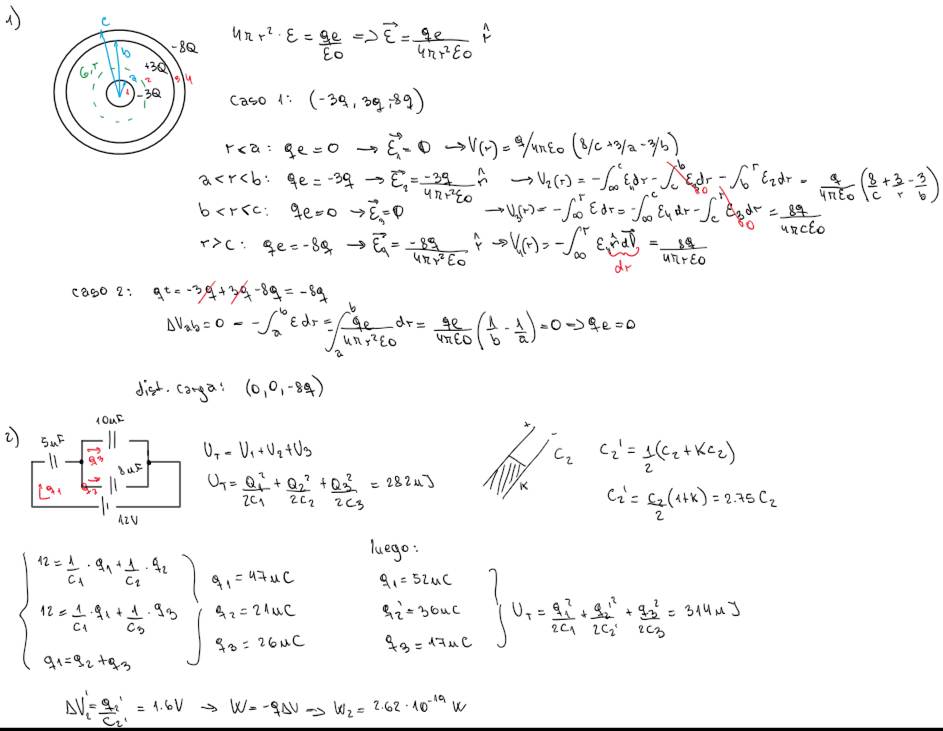 1)
c
b
a
G, r
-8Q
+3Q
-3Q
1 2 3 4
4πr²·ε = qe/ε0 => ε⃗ = qe/4πr²ε0 r̂
caso 1: (-3q, 3q, -8q)
r<a: qe=0 → ε⃗₁=0 → V(r)=q/4πε0 (8/c+3/a-3/b)
a<r<b: qe=-3q → ε⃗₂=-3q/4πr²ε0 r̂ → V₂(r)=-∫∞^c ε₄dr-∫c^b ε₃dr-∫b^r ε₂dr = q/4πε0 (8/c+3/r-3/b)
b<r<c: qe=0 → ε⃗₃=0 → V₃(r)=-∫∞^r εdr=-∫∞^c ε₄dr-∫c^r ε₃dr = 8q/4πcε0
r>c: qe=-8q → ε⃗₄=-8q/4πr²ε0 r̂ → V₄(r)=-∫∞^r ε₄r̂dl⃗ = 8q/4πrε0
dr
caso 2: qe=-3q+3q-8q=-8q
ΔVab=0 = -∫a^b εdr = -∫a^b qe/4πr²ε0 dr = qe/4πε0 (1/b-1/a)=0 => qe=0
dist. carga: (0,0,-8q)
2)
10μF
5μF
8μF
12V
q1
q3
q2
UT = U1+U2+U3
UT = Q1²/2C1 + Q2²/2C2 + Q3²/2C3 = 282μJ
+
-
C2
K
C2' = 1/2(C2+KC2)
C2' = C2/2(1+K) = 2.75 C2
12=1/C1·q1+1/C2·q2
12=1/C1·q1+1/C3·q3
q1=q2+q3
q1=47μC
q2=21μC
q3=26μC
luego:
q1=52μC
q2'=36μC
q3=17μC
UT = q1²/2C1 + q2'²/2C2' + q3²/2C3 = 314μJ
ΔV2'=q2'/C2' = 1.6V → W=-qΔV => W2 = 2.62·10⁻¹⁹ W